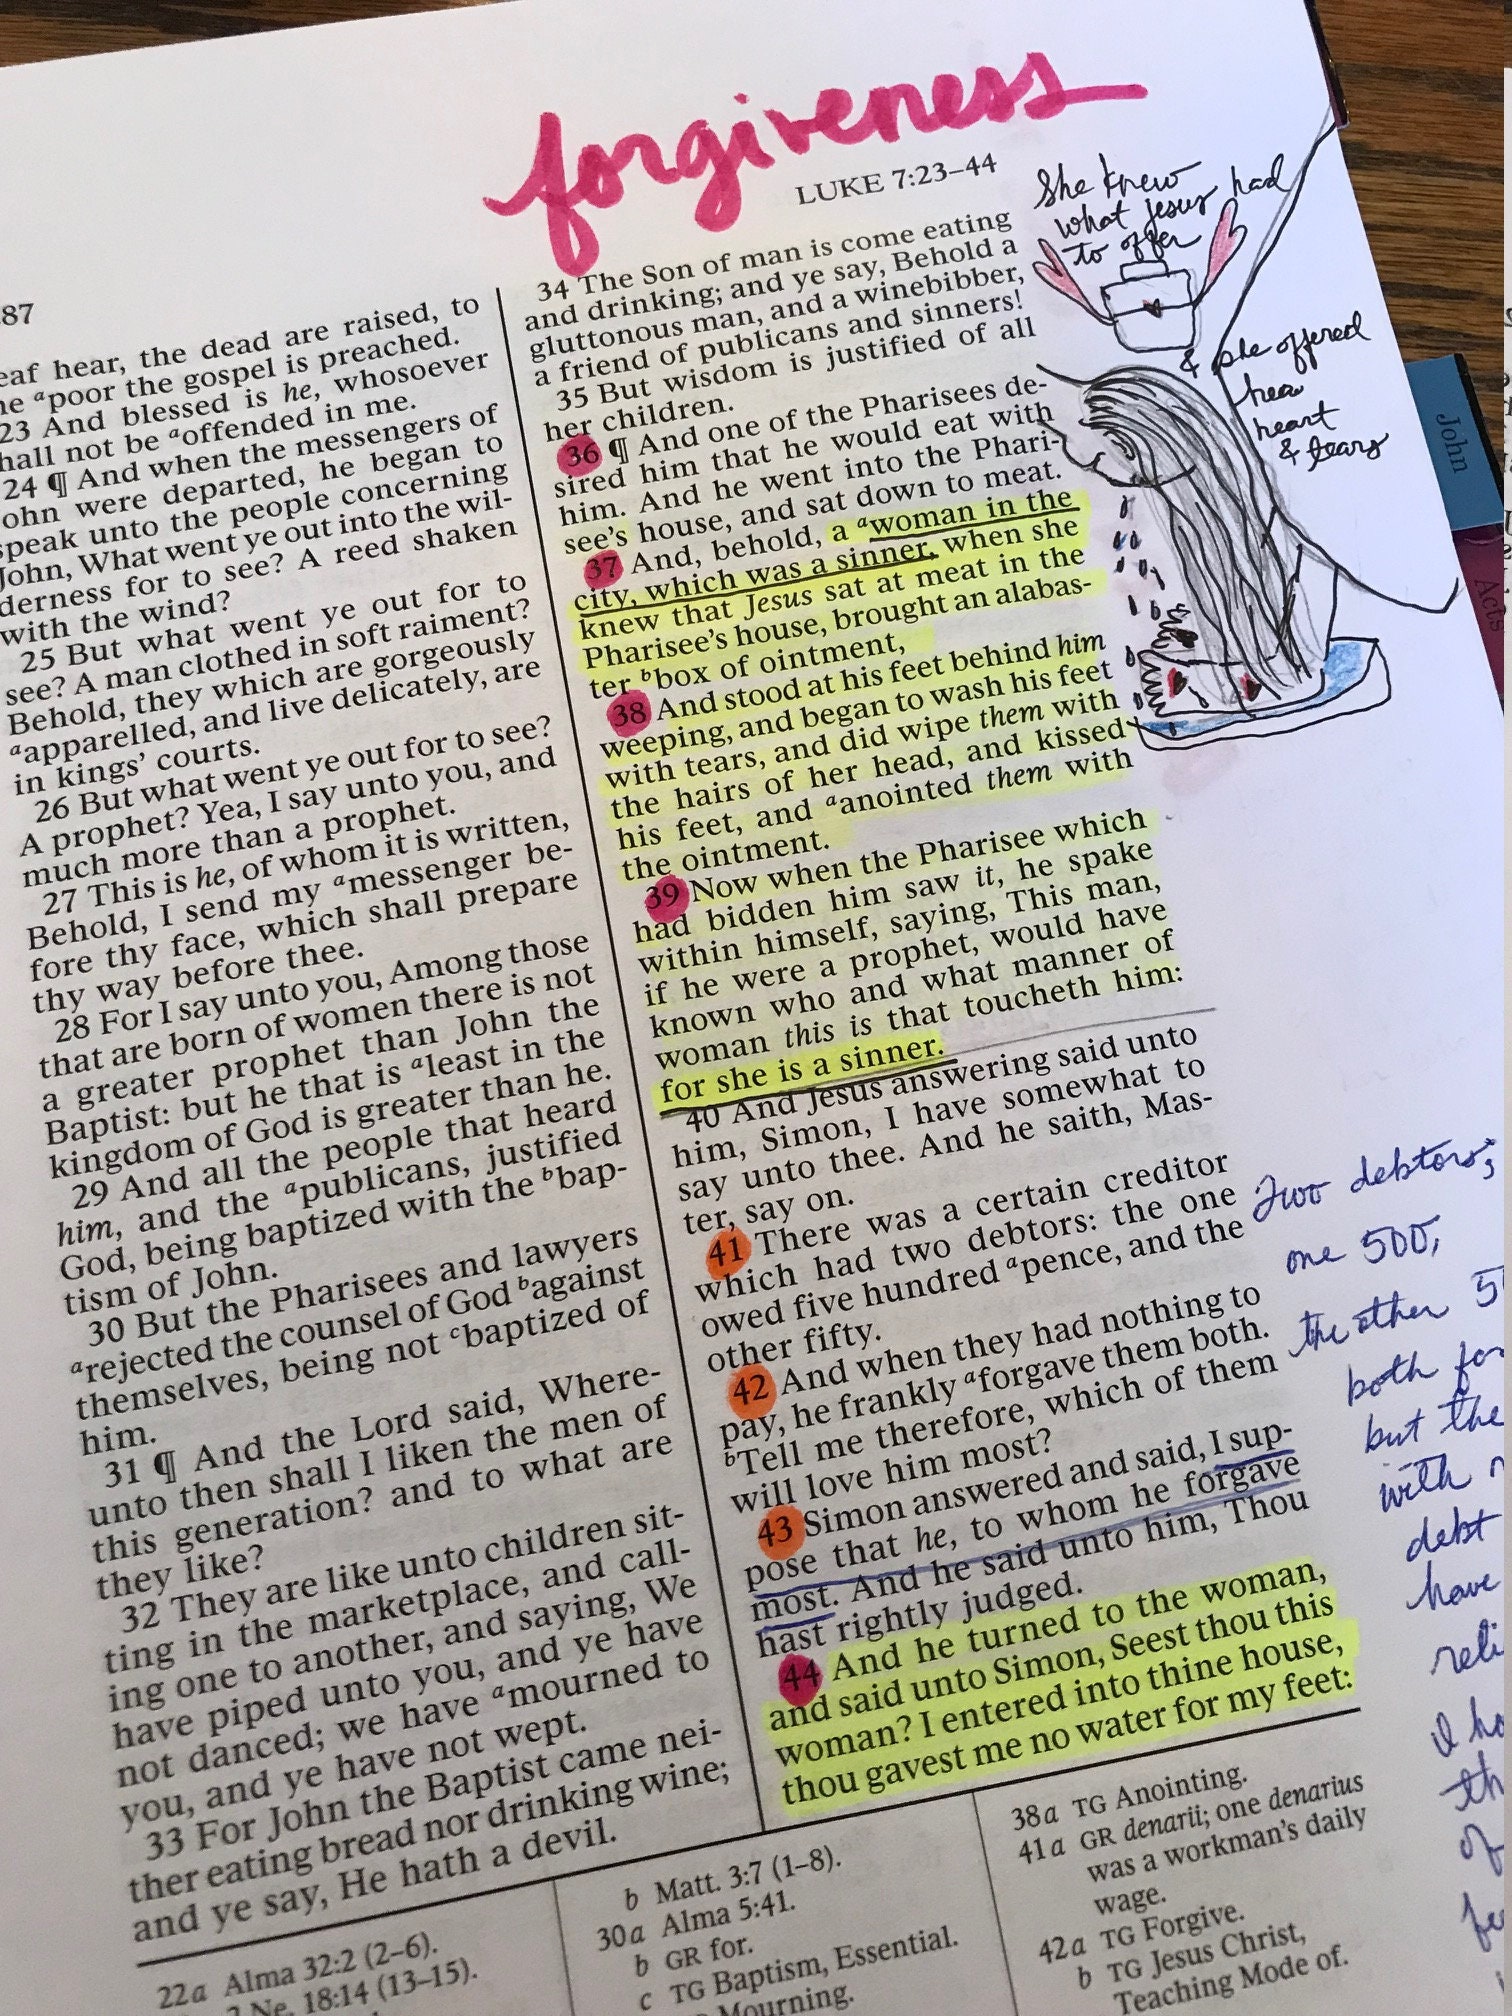 forgiveness
LUKE 7:23–44
87
eaf hear, the dead are raised, to
ᵃpoor the gospel is preached.
23 And blessed is he, whosoever
hall not be ᵃoffended in me.
24 ¶ And when the messengers of
ohn were departed, he began to
speak unto the people concerning
John, What went ye out into the wil-
derness for to see? A reed shaken
with the wind?
25 But what went ye out for to
see? A man clothed in soft raiment?
Behold, they which are gorgeously
ᵃapparelled, and live delicately, are
in kings’ courts.
26 But what went ye out for to see?
A prophet? Yea, I say unto you, and
much more than a prophet.
27 This is he, of whom it is written,
Behold, I send my ᵃmessenger be-
fore thy face, which shall prepare
thy way before thee.
28 For I say unto you, Among those
that are born of women there is not
a greater prophet than John the
Baptist: but he that is ᵃleast in the
kingdom of God is greater than he.
29 And all the people that heard
him, and the ᵃpublicans, justified
God, being baptized with the ᵇbap-
tism of John.
30 But the Pharisees and lawyers
ᵃrejected the counsel of God ᵇagainst
themselves, being not ᶜbaptized of
him.
31 ¶ And the Lord said, Where-
unto then shall I liken the men of
this generation? and to what are
they like?
32 They are like unto children sit-
ting in the marketplace, and call-
ing one to another, and saying, We
have piped unto you, and ye have
not danced; we have ᵃmourned to
you, and ye have not wept.
33 For John the Baptist came nei-
ther eating bread nor drinking wine;
and ye say, He hath a devil.
34 The Son of man is come eating
and drinking; and ye say, Behold a
gluttonous man, and a winebibber,
a friend of publicans and sinners!
35 But wisdom is justified of all
her children.
36 ¶ And one of the Pharisees de-
sired him that he would eat with
him. And he went into the Phari-
see’s house, and sat down to meat.
37 And, behold, a ᵃwoman in the
city, which was a sinner, when she
knew that Jesus sat at meat in the
Pharisee’s house, brought an alabas-
ter ᵇbox of ointment,
38 And stood at his feet behind him
weeping, and began to wash his feet
with tears, and did wipe them with
the hairs of her head, and kissed
his feet, and ᵃanointed them with
the ointment.
39 Now when the Pharisee which
had bidden him saw it, he spake
within himself, saying, This man,
if he were a prophet, would have
known who and what manner of
woman this is that toucheth him:
for she is a sinner.
40 And Jesus answering said unto
him, Simon, I have somewhat to
say unto thee. And he saith, Mas-
ter, say on.
41 There was a certain creditor
which had two debtors: the one
owed five hundred ᵃpence, and the
other fifty.
42 And when they had nothing to
pay, he frankly ᵃforgave them both.
ᵇTell me therefore, which of them
will love him most?
43 Simon answered and said, I sup-
pose that he, to whom he forgave
most. And he said unto him, Thou
hast rightly judged.
44 And he turned to the woman,
and said unto Simon, Seest thou this
woman? I entered into thine house,
thou gavest me no water for my feet:
She knew
what Jesus had
to offer
& she offered
her
heart
& tears
Two debtors,
one 500,
the other 5
both for
but the
with
debt
have
reli
I ho
th
of
John
Acts
22a Alma 32:2 (2–6).
2 Ne. 18:14 (13–15).
b Matt. 3:7 (1–8).
30a Alma 5:41.
b GR for.
c TG Baptism, Essential.
Mourning.
38a TG Anointing.
41a GR denarii; one denarius
was a workman’s daily
wage.
42a TG Forgive.
b TG Jesus Christ,
Teaching Mode of.